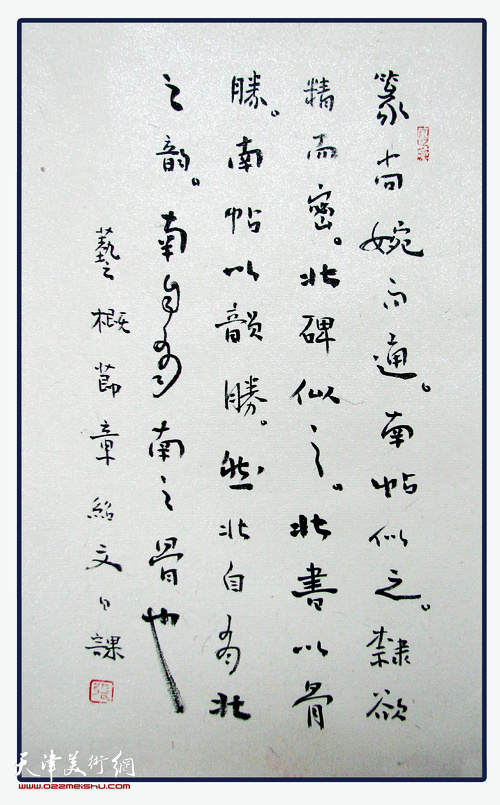 篆尚婉而通。南帖似之。隸欲
精而密。北碑似之。北書以骨
勝。南帖以韻勝。然北自有北
之韵。南自有南之骨也
藝概節章紹文日課
天津美術網
www.022meishu.com